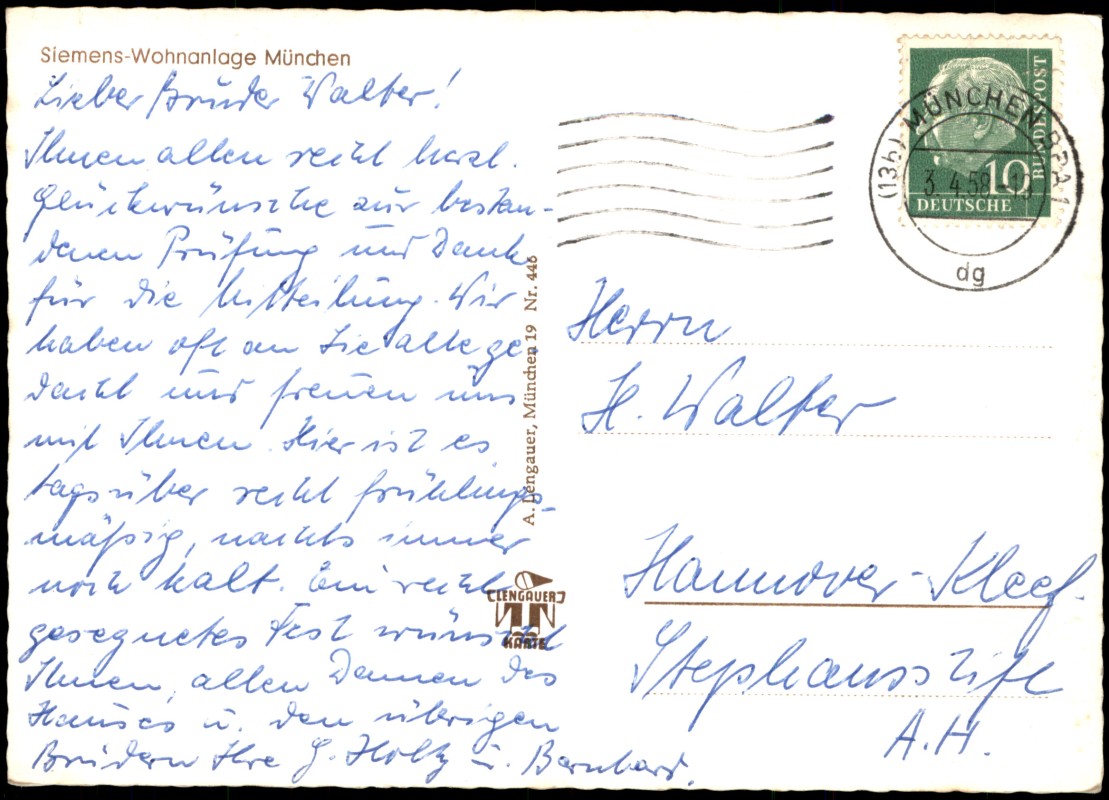 Siemens-Wohnanlage München
Lieber Bruder Walter!
Ihnen allen recht herzl.
Glückwünsche zur bestan-
denen Prüfung und Dank
für die Mitteilung. Wir
haben oft an Sie alle ge-
dacht und freuen uns
mit Ihnen. Hier ist es
tagsüber recht frühlings-
mäßig, nachts immer
noch kalt. Ein recht
gesegnetes Fest wünscht
Ihnen, allen Damen des
Hauses u. den übrigen
Brüdern Ihre G. Holtz u. Bernhard.
A. Lengauer, München 19 Nr. 446
LENGAUER
KARTE
DEUTSCHE
BUNDESPOST
10
(13b) MÜNCHEN BPA 1
3.4.58-10
dg
Herrn
H. Walter
Hannover-Kleef.
Stephansstift
A.H.